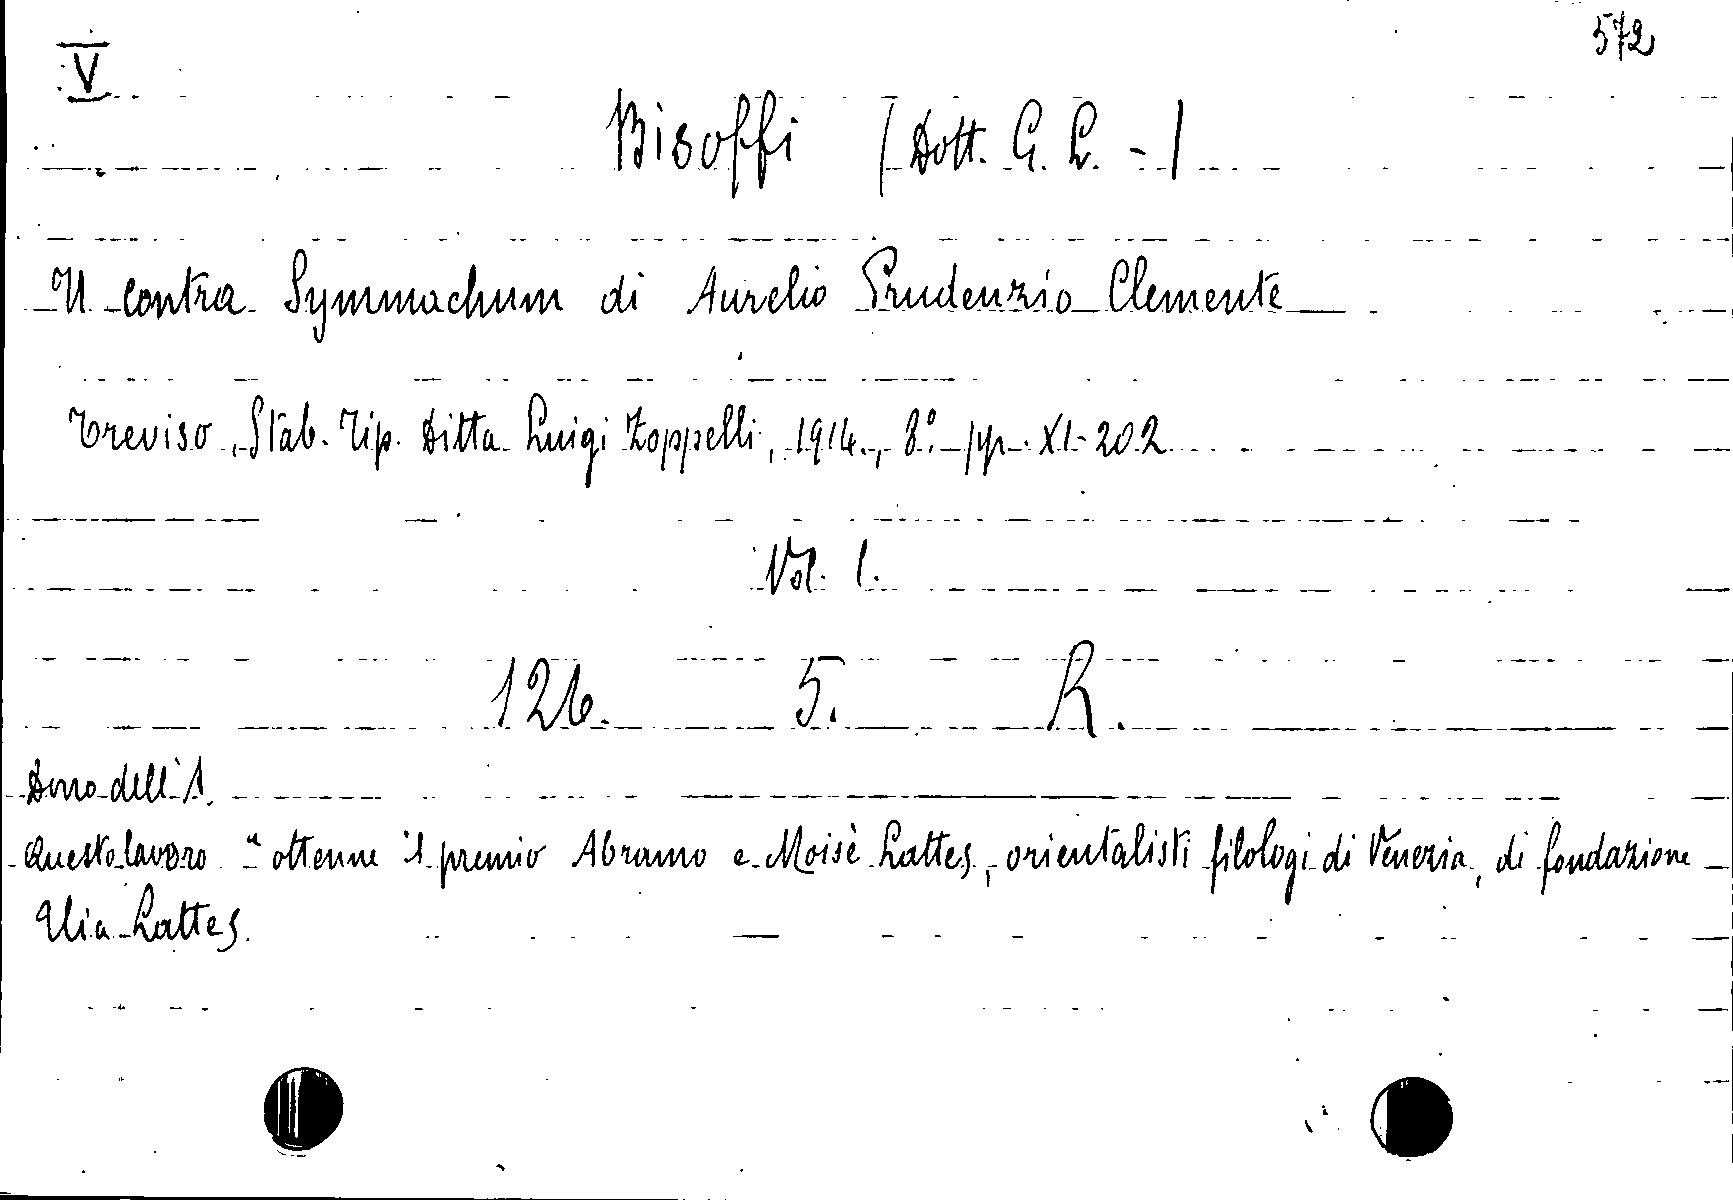 572
V
Bisoffi (Dott. G. L. -)
Il contra Symmachum di Aurelio Prudenzio Clemente
Treviso, Stab. Tip. Ditta Luigi Zoppelli, 1914., 8.° pp. XI-202
Vol. I.
126. 5. R.
Dono dell'A.
Questo lavoro "ottenne il premio Abramo e Moisè Lattes, orientalisti filologi di Venezia, di fondazione
Elia Lattes.